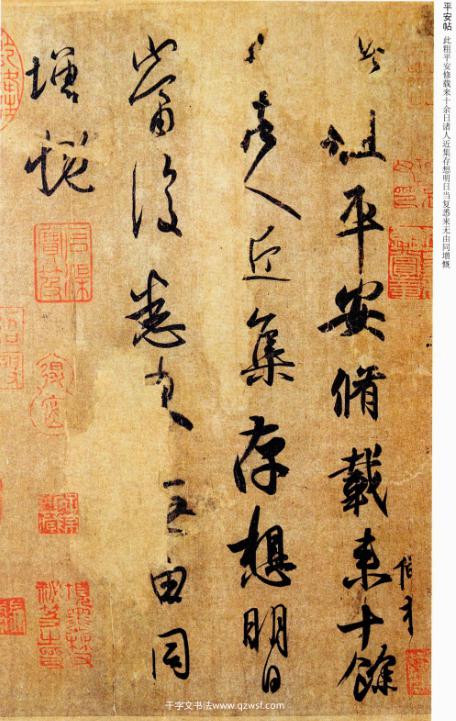 平安帖 此粗平安修载来十余日诸人近集存想明日当复悉来无由同增慨
此粗平安脩載来十餘
日諸人近集存想明日
當復悉来无由同
增慨
千字文书法www.qzwsf.com